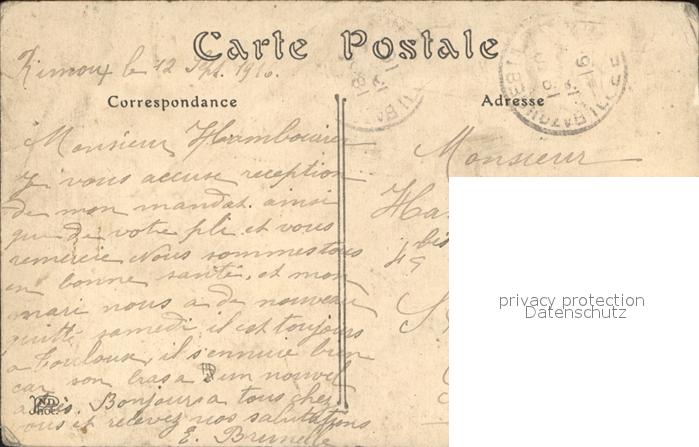 Carte Postale
Rimoux le 12 Spt. 1916.
Correspondance
Adresse
Monsieur Hambouvier
J vous accuse reception
de mon mandat. ainsi
que de votre pli et vous
remercie Nous sommes tous
en bonne santé, et mon
mari nous a de nouveau
quitté samedi, il est toujours
a Toulouse, il s'ennuie bien
car son bras a d'un nouvel
abcès. Bonjours a tous chez
vous et recevez nos salutations
E. Brunelle
ND
PHOT.
Monsieur
Ha
49 bis
privacy protection
Datenschutz